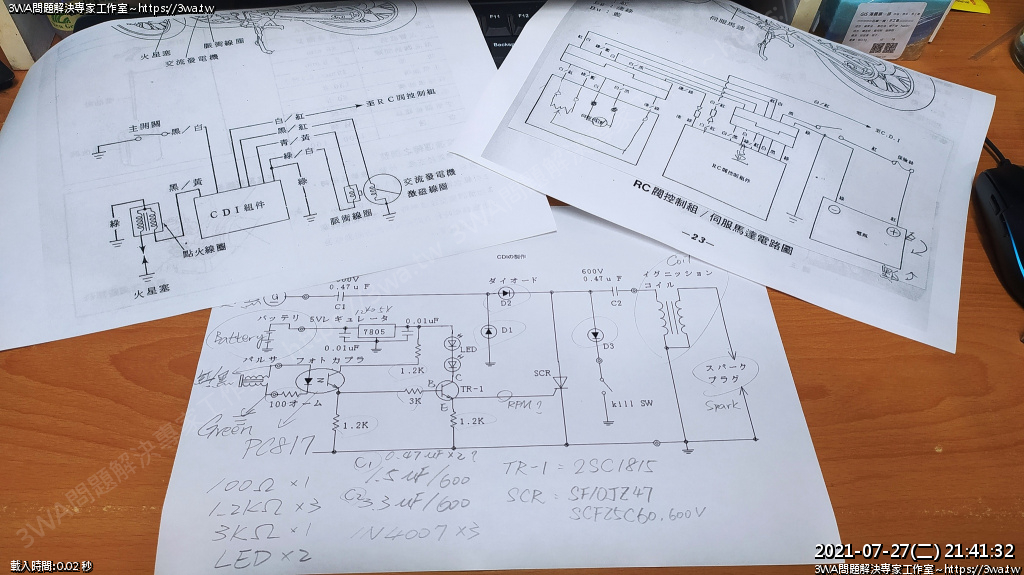 3WA問題解決專家工作室~https://3wa.tw
火星塞
脈衝線圈
交流發電機
至RC閥控制組
主開關
黑/白
白/紅
黑/紅
青/黃
綠/白
黑/黃
綠
綠
CDI組件
交流發電機
激磁線圈
脈衝線圈
點火線圈
火星塞
伺服馬達
白/紅
至C.D.I
RC閥控制組件
電瓶
RC閥控制組/伺服馬達電路圖
—23—
CDIの製作
600V
0.47uF
C1
ダイオード
D2
600V
0.47uF
C2
Coil
イグニッション
コイル
バッテリ
5Vレギュレータ
7805
0.01uF
Battery
0.01uF
LED
D1
D3
パルサ
フォトカプラ
1.2K
C
B
TR-1
E
SCR
スパーク
プラグ
100オーム
3K
RPM?
kill SW
Spark
Green
1.2K
1.2K
PC817
C1 0.47uF×2?
1.5uF/600
C2 3.3uF/600
1N4007×3
100Ω×1
1.2KΩ×3
3KΩ×1
LED×2
TR-1=2SC1815
SCR=SF10JZ47
SCF25C60.600V
載入時間:0.02 秒
2021-07-27(二) 21:41:32
3WA問題解決專家工作室~https://3wa.tw